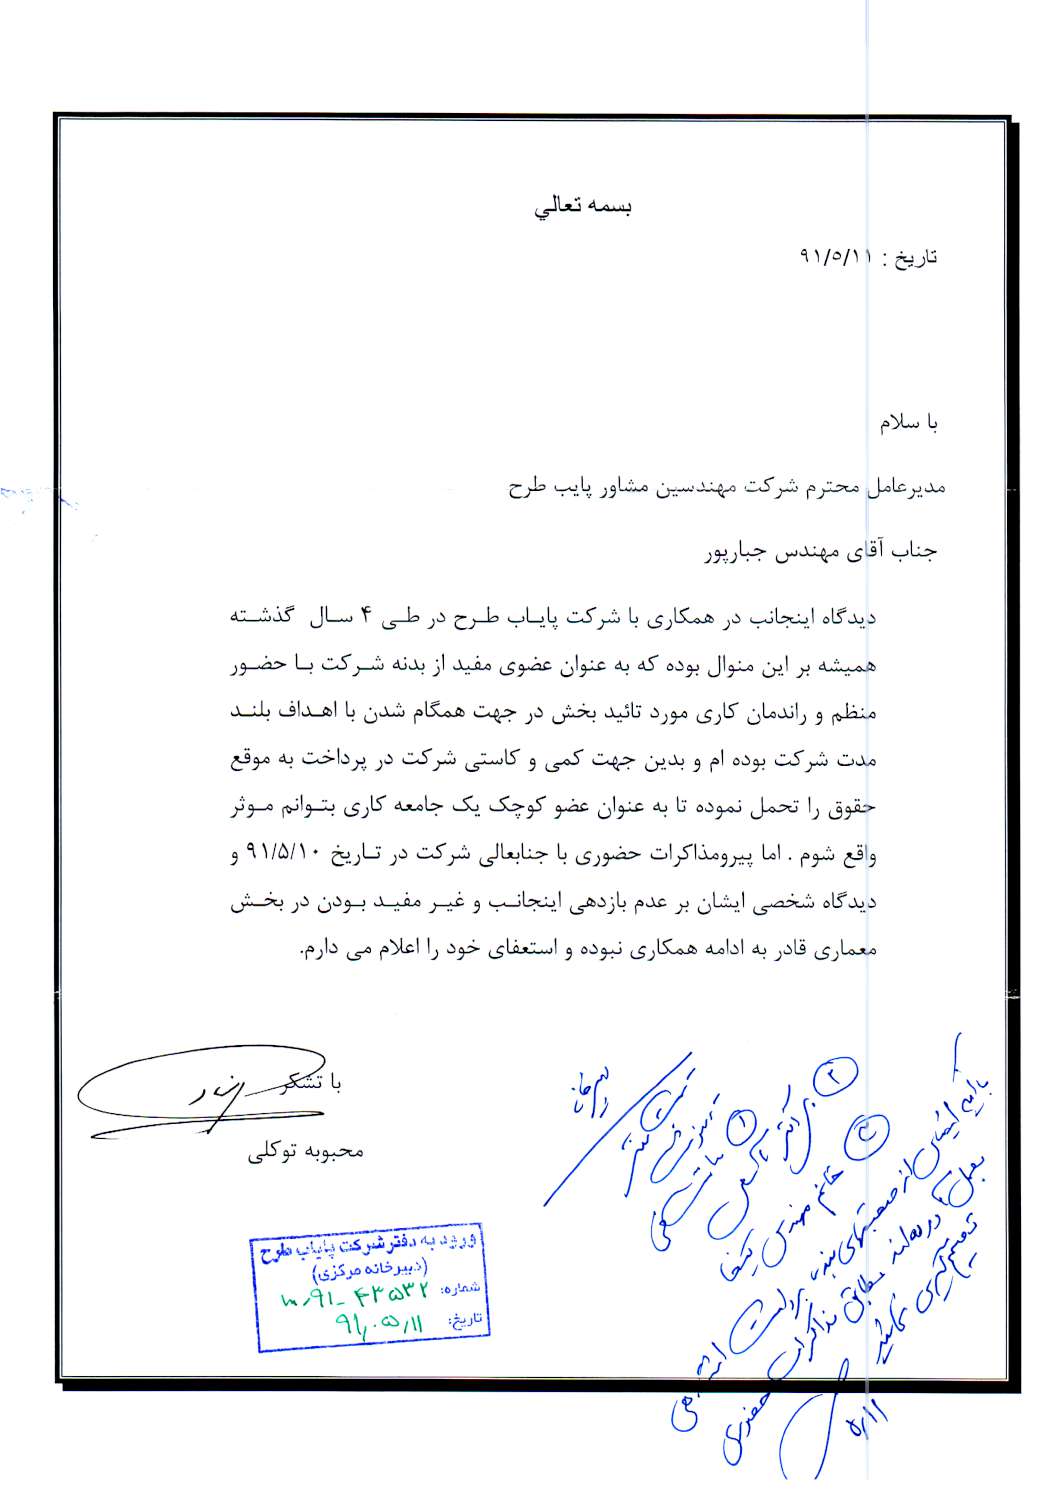 بسمه تعالي
تاریخ : ۹۱/۵/۱۱
با سلام
مدیرعامل محترم شرکت مهندسین مشاور پایب طرح
جناب آقای مهندس جبارپور
دیدگاه اینجانب در همکاری با شرکت پایاب طرح در طی ۴ سال گذشته
همیشه بر این منوال بوده که به عنوان عضوی مفید از بدنه شرکت با حضور
منظم و راندمان کاری مورد تائید بخش در جهت همگام شدن با اهداف بلند
مدت شرکت بوده ام و بدین جهت کمی و کاستی شرکت در پرداخت به موقع
حقوق را تحمل نموده تا به عنوان عضو کوچک یک جامعه کاری بتوانم موثر
واقع شوم . اما پیرومذاکرات حضوری با جنابعالی شرکت در تاریخ ۹۱/۵/۱۰ و
دیدگاه شخصی ایشان بر عدم بازدهی اینجانب و غیر مفید بودن در بخش
معماری قادر به ادامه همکاری نبوده و استعفای خود را اعلام می دارم.
با تشکر
محبوبه توکلی
ورود به دفتر شرکت پایاب طرح
(دبیرخانه مرکزی)
شماره: ۹۱-۴۳۵۳۲
تاریخ: ۹۱,۰۵,۱۱
۱
۲
۳
خانم مهندس
از صحبتهای بنده برداشت
مطابق مذاکرات حضوری
تصمیم گیری نمائید
۵/۱۱